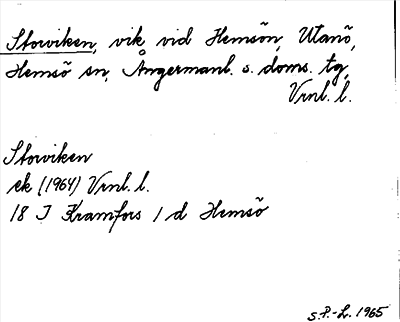 Storviken, vik vid Hemsön, Utanö,
Hemsö sn, Ångermanl. s. doms. tg,
Vrnl. l.
Storviken
ek (1964) Vrnl. l.
18 I Kramfors 1 d Hemsö
S.P.-L. 1965